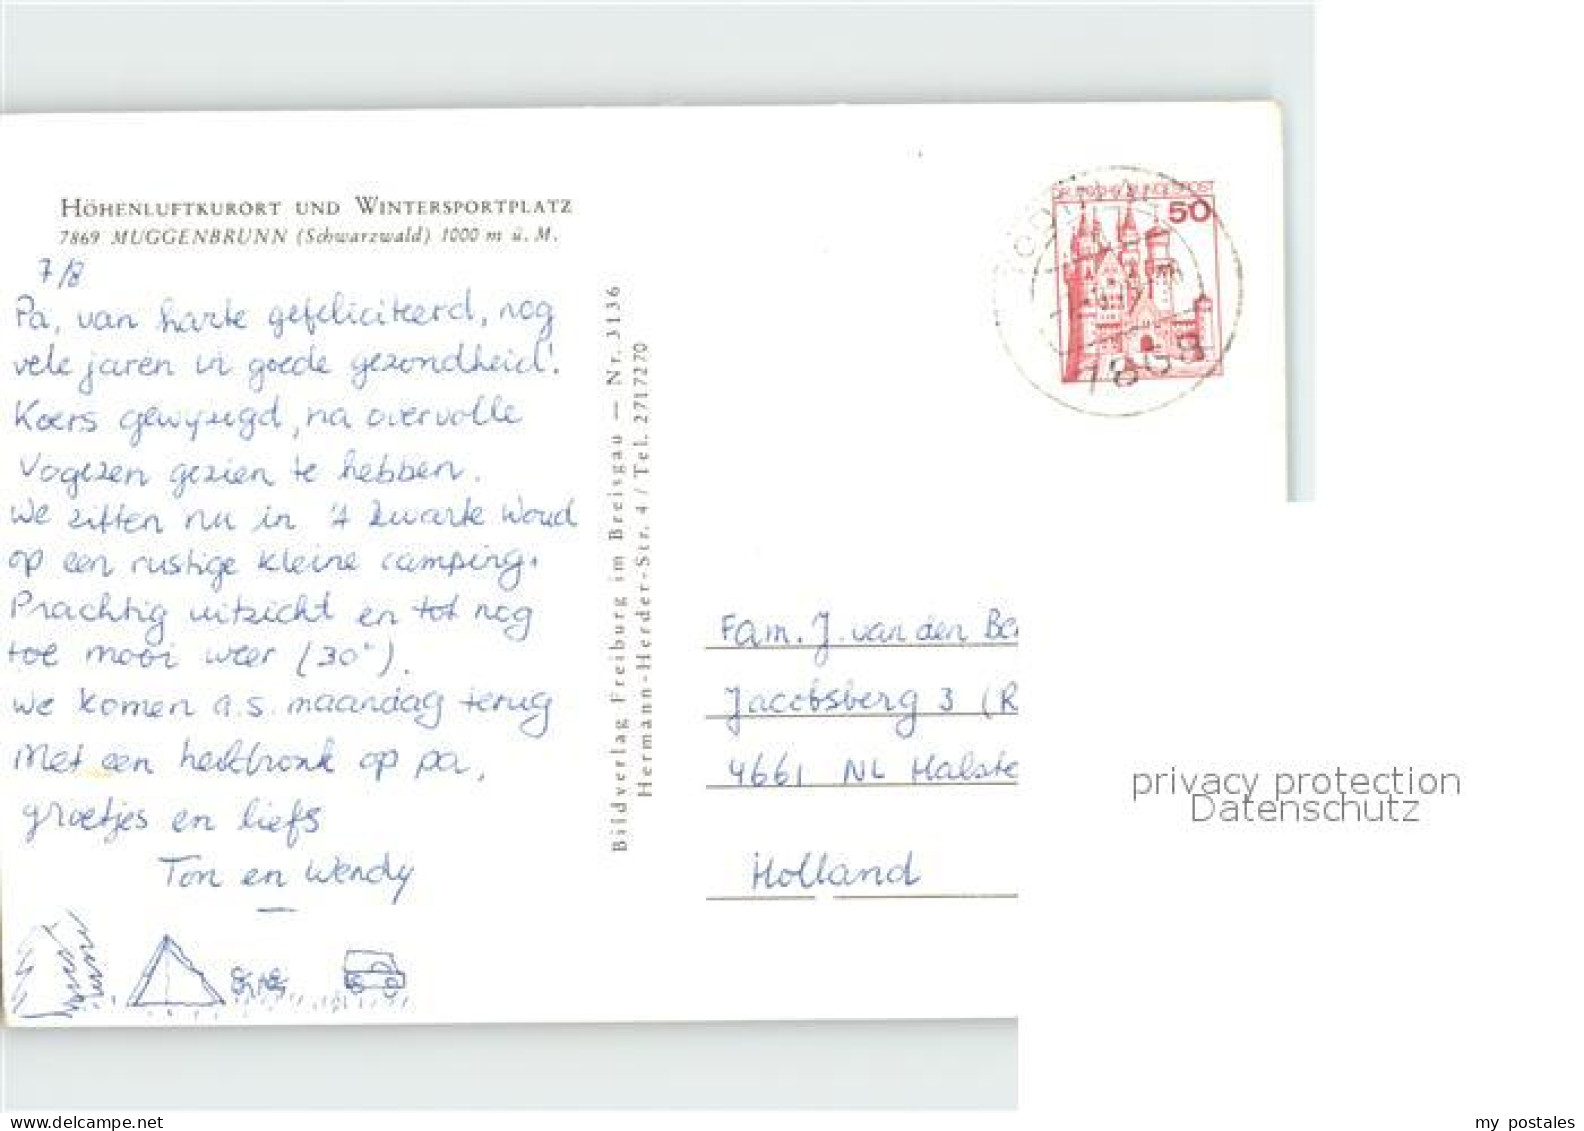 HÖHENLUFTKURORT UND WINTERSPORTPLATZ
7869 MUGGENBRUNN (Schwarzwald) 1000 m ü. M.
7/8
Pa, van harte gefeliciteerd, nog
vele jaren in goede gezondheid!
Koers gewijzigd, na overvolle
Vogezen gezien te hebben.
We zitten nu in 't Zwarte Woud
op een rustige kleine camping.
Prachtig uitzicht en tot nog
toe mooi weer (30°).
We komen a.s. maandag terug
Met een heildronk op pa,
groetjes en liefs
Ton en Wendy
Bildverlag Freiburg im Breisgau — Nr. 3136
Hermann-Herder-Str. 4 / Tel. 2717270
DEUTSCHE BUNDESPOST
50
7868
Fam. J. van den Be
Jacobsberg 3 (R
4661 NL Halste
Holland
privacy protection
Datenschutz
my postales